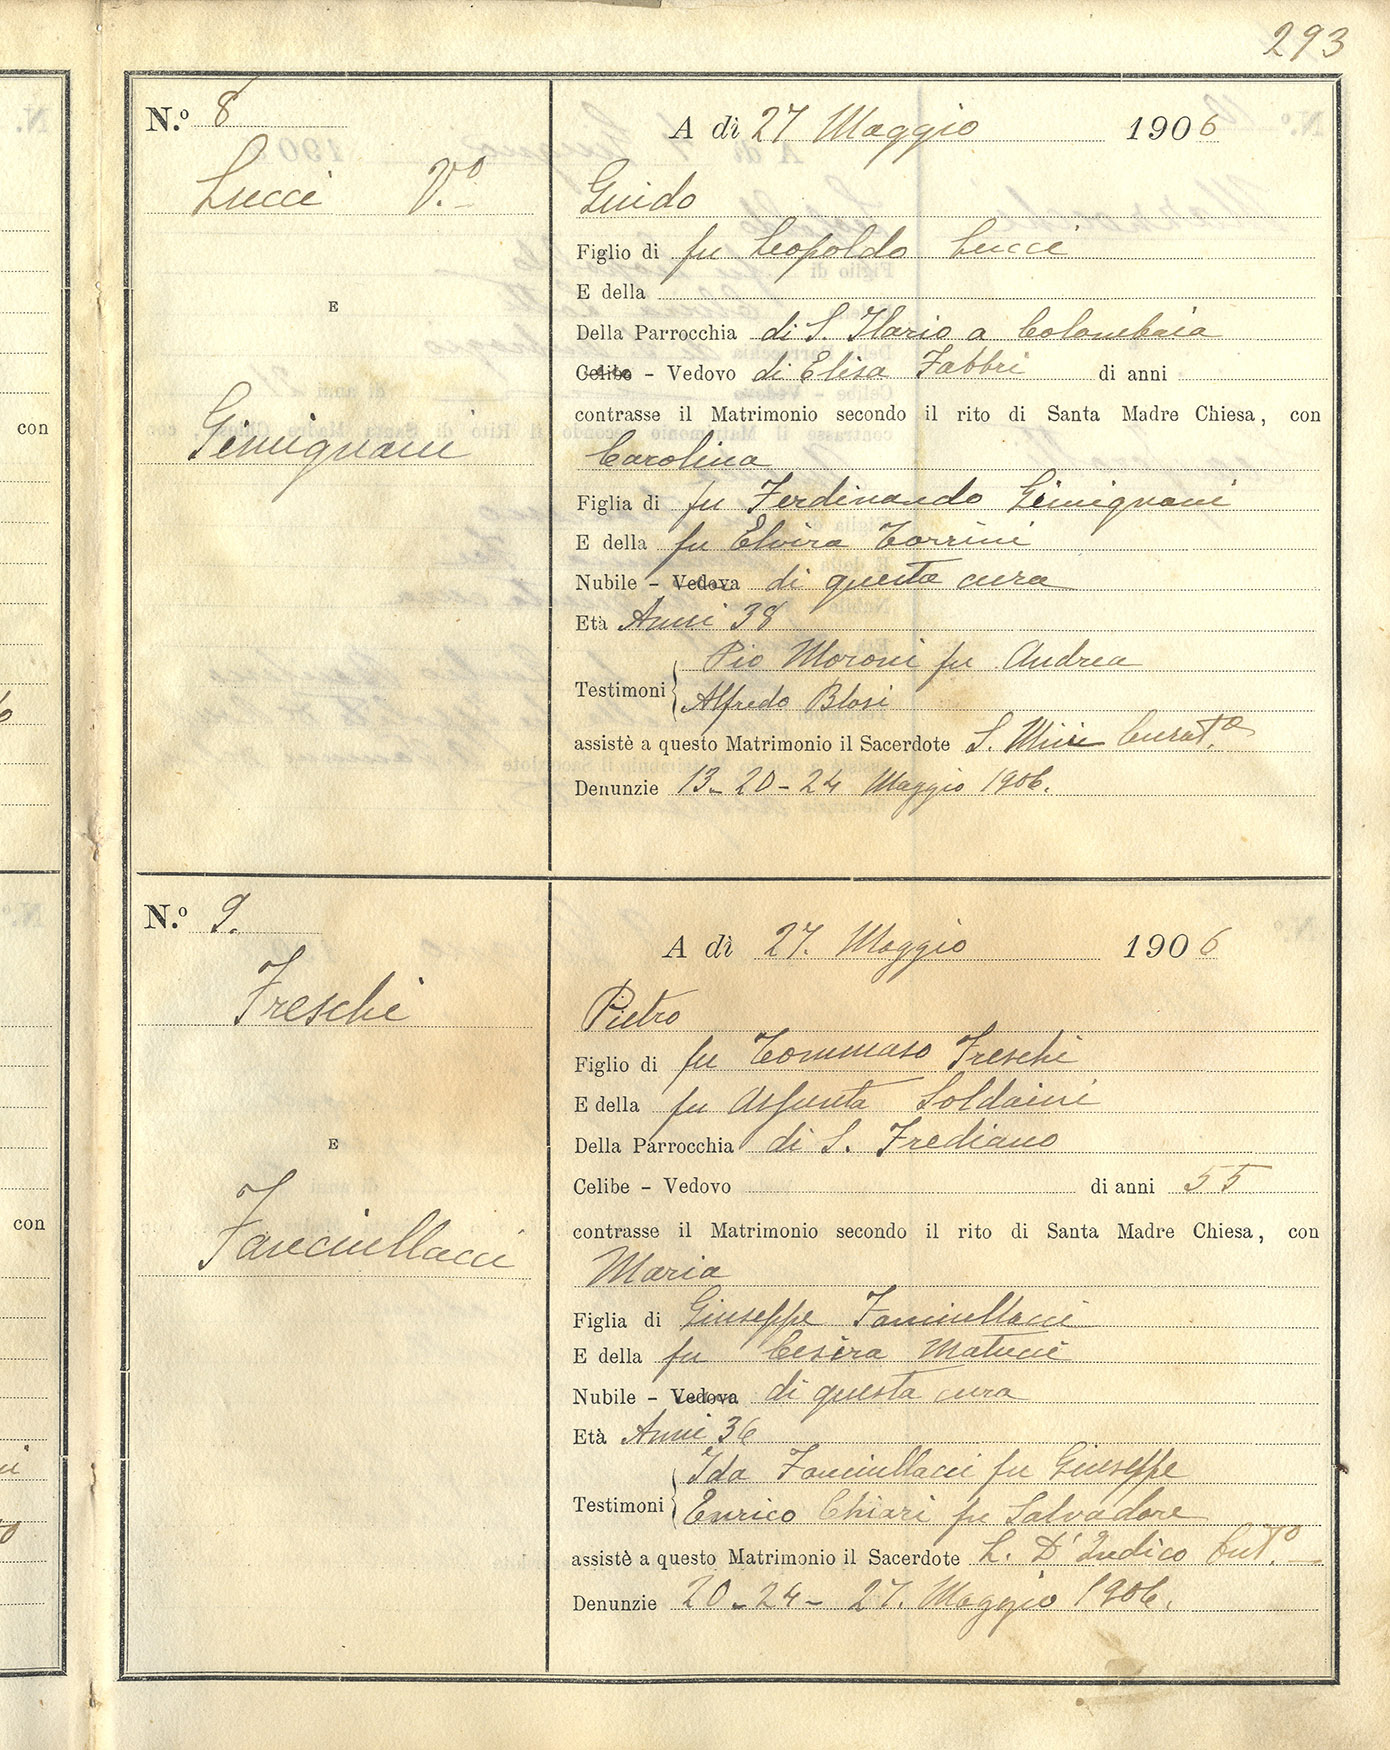 293
N.º 8
Lucci V.º
E
Gimignani
A dì 27 Maggio 1906
Guido
Figlio di fu Leopoldo Lucci
E della
Della Parrocchia di S. Ilario a Colombaia
Celibe - Vedovo di Elisa Fabbri di anni
contrasse il Matrimonio secondo il rito di Santa Madre Chiesa, con
Carolina
Figlia di fu Ferdinando Gimignani
E della fu Elvira Torrini
Nubile - Vedova di questa cura
Età Anni 38
Pio Moroni fu Andrea
Testimoni
Alfredo Blosi
assistè a questo Matrimonio il Sacerdote S. Curat.º
Denunzie 13 - 20 - 24 Maggio 1906.
N.º 9.
Freschi
E
Fanciullacci
A dì 27. Maggio 1906
Pietro
Figlio di fu Tommaso Freschi
E della fu Assunta Soldaini
Della Parrocchia di S. Frediano
Celibe - Vedovo di anni 55
contrasse il Matrimonio secondo il rito di Santa Madre Chiesa, con
Maria
Figlia di Giuseppe Fanciullacci
E della fu Cesira Matucci
Nubile - Vedova di questa cura
Età Anni 36
Ida Fanciullacci fu Giuseppe
Testimoni
Enrico Chiari fu Salvadore
assistè a questo Matrimonio il Sacerdote L. D'Indico Cut.º
Denunzie 20 - 24 - 27. Maggio 1906.
con
con